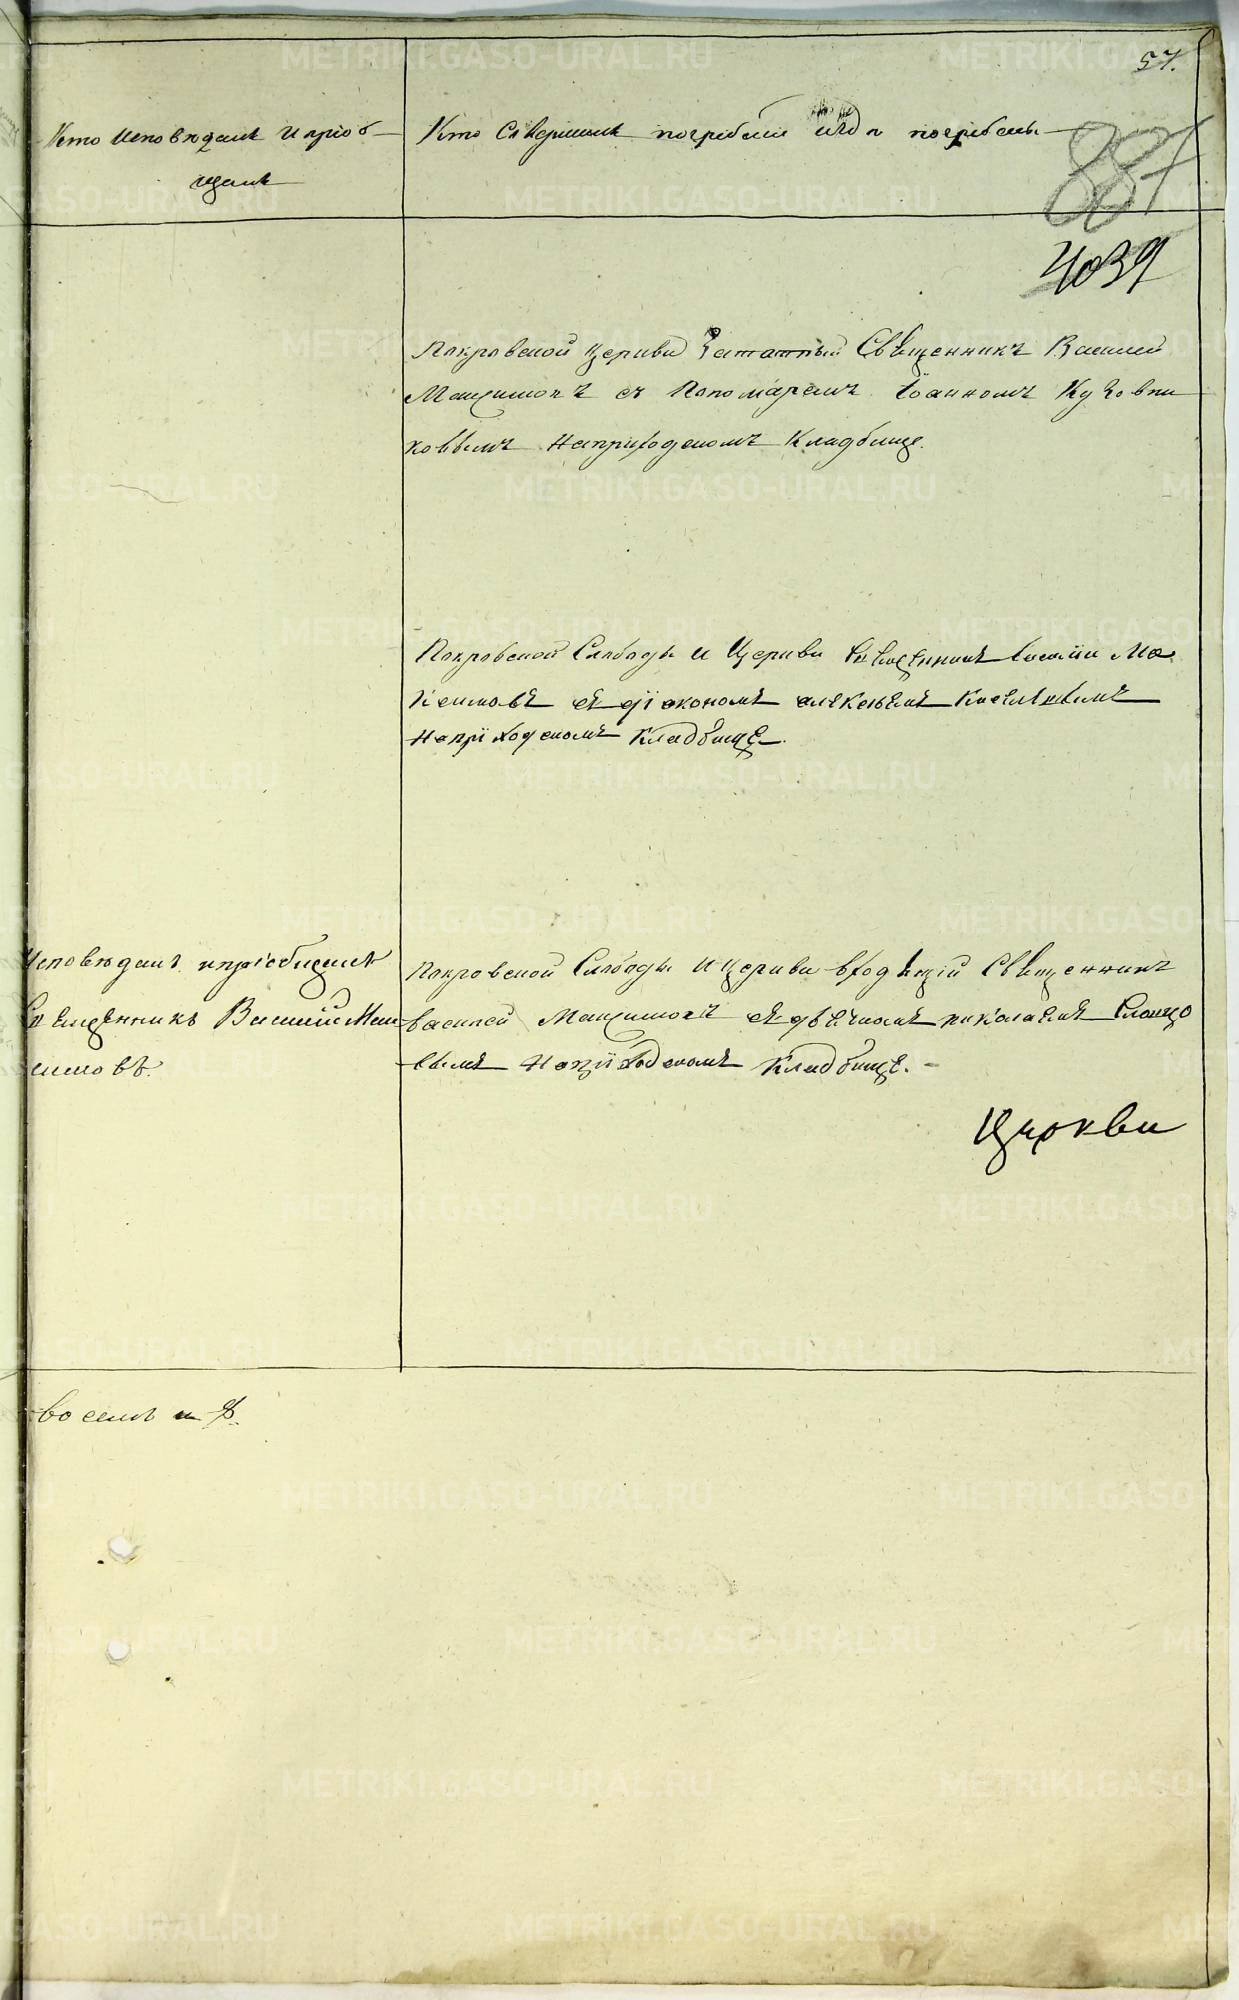 57.
Кто исповѣдалъ и пріоб
щалъ
Кто совершилъ погребеніе и гдѣ погребены
887
4039
Покровской церкви Заштатный Священникъ Василей
Максимовъ съ Пономаремъ Іоанномъ Кузовни
ковымъ наприходскомъ кладбище.
Покровской Слободы и Церкви священникъ василіи Ма
ксимовъ съ діакономъ алексѣемъ
наприходскомъ кладбище.
Исповѣдалъ ипріобщалъ
Священникъ Василій Мак
симовъ.
Покровской Слободы и церкви Священникъ
василей Максимовъ съ дьячкомъ николаемъ Словцо
вымъ наприходскомъ кладбище.
Церкви